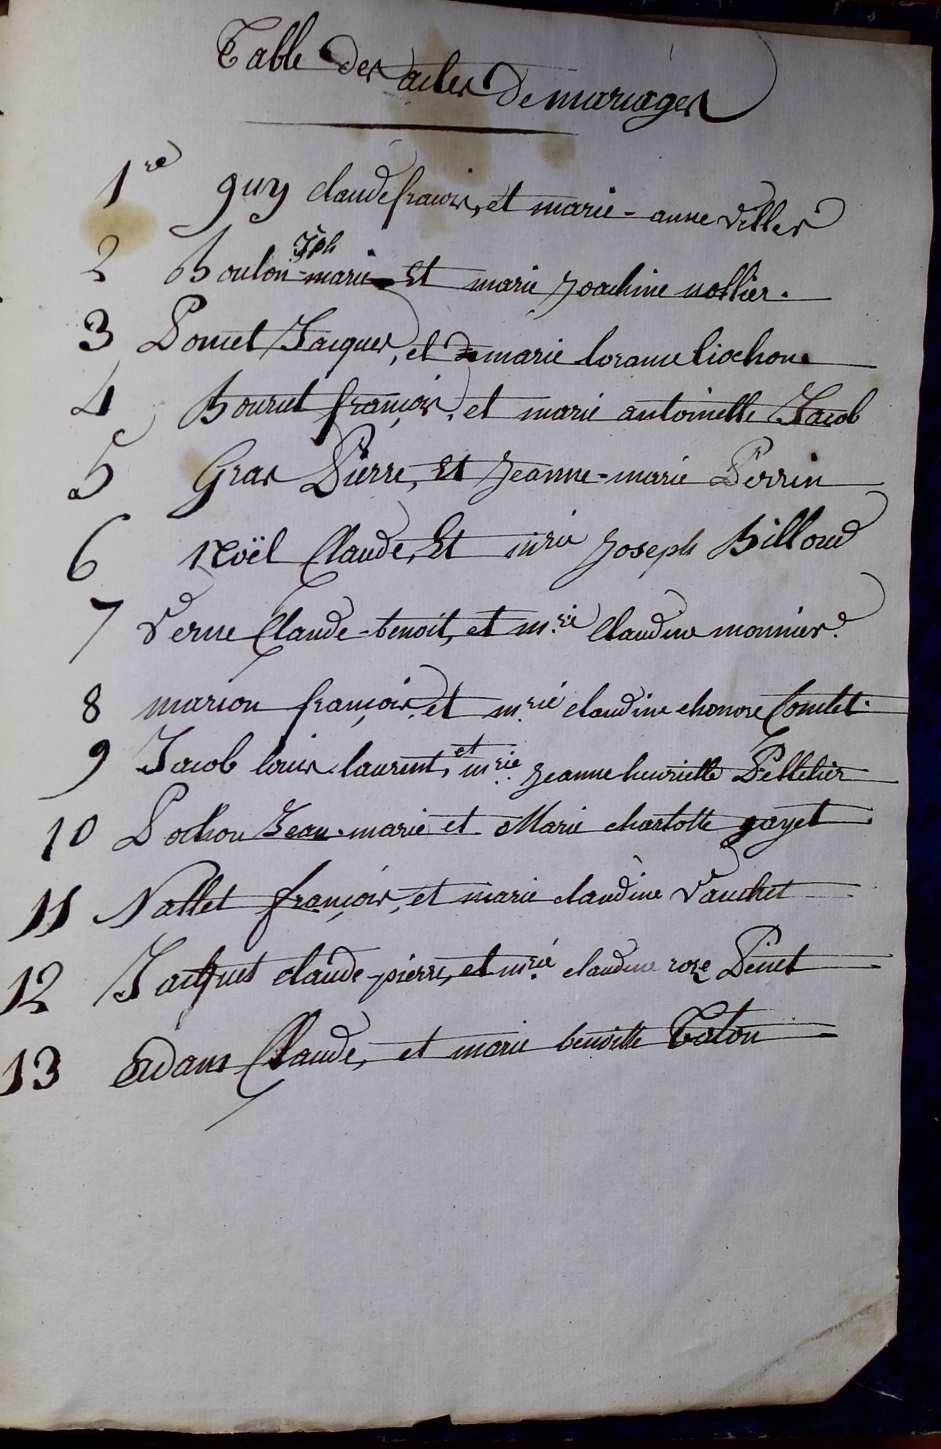 Table des actes De mariages
1re guy claude françois, et marie-anne Villes
2 Boulon Jph marie Et marie Joachine nollier.
3 Pomet Jacques, et marie lorance liochon
4 Bourut françois, et marie antoinette Jacob
5 Gras Pierre, Et Jeanne-marie Perrin
6 Noël Claude, Et mrie Joseph Billoud
7 Verne Claude-benoit, et m.rie Claudine monnier.
8 marion françois, et m.rie claudine honore Comtet.
9 Jacob louis laurent, et m.rie Jeanne henriette Pelletier
10 Pochon Jean-marie et Marie charlotte gayet
11 Nallet françois, et marie claudine Vauchet
12 Jacquet claude-pierre, et m.rie claudine roze Penet
13 Adam Claude, et marie benoitte Tolon